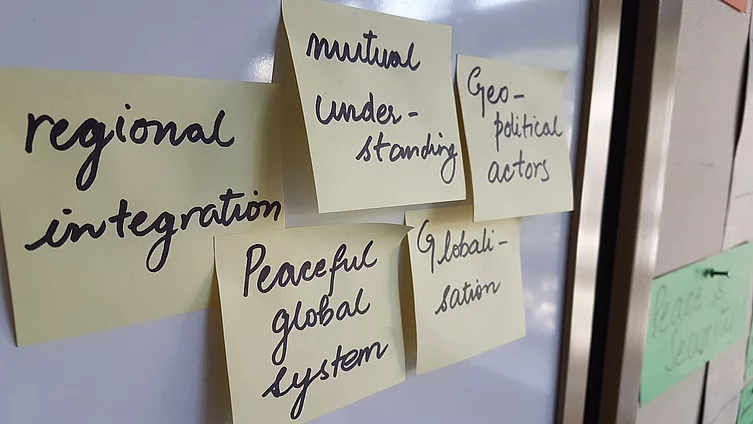 regional
integration
mutual
under-
standing
Geo-
political
actors
Peaceful
global
system
Globali-
sation
Peace &
Security